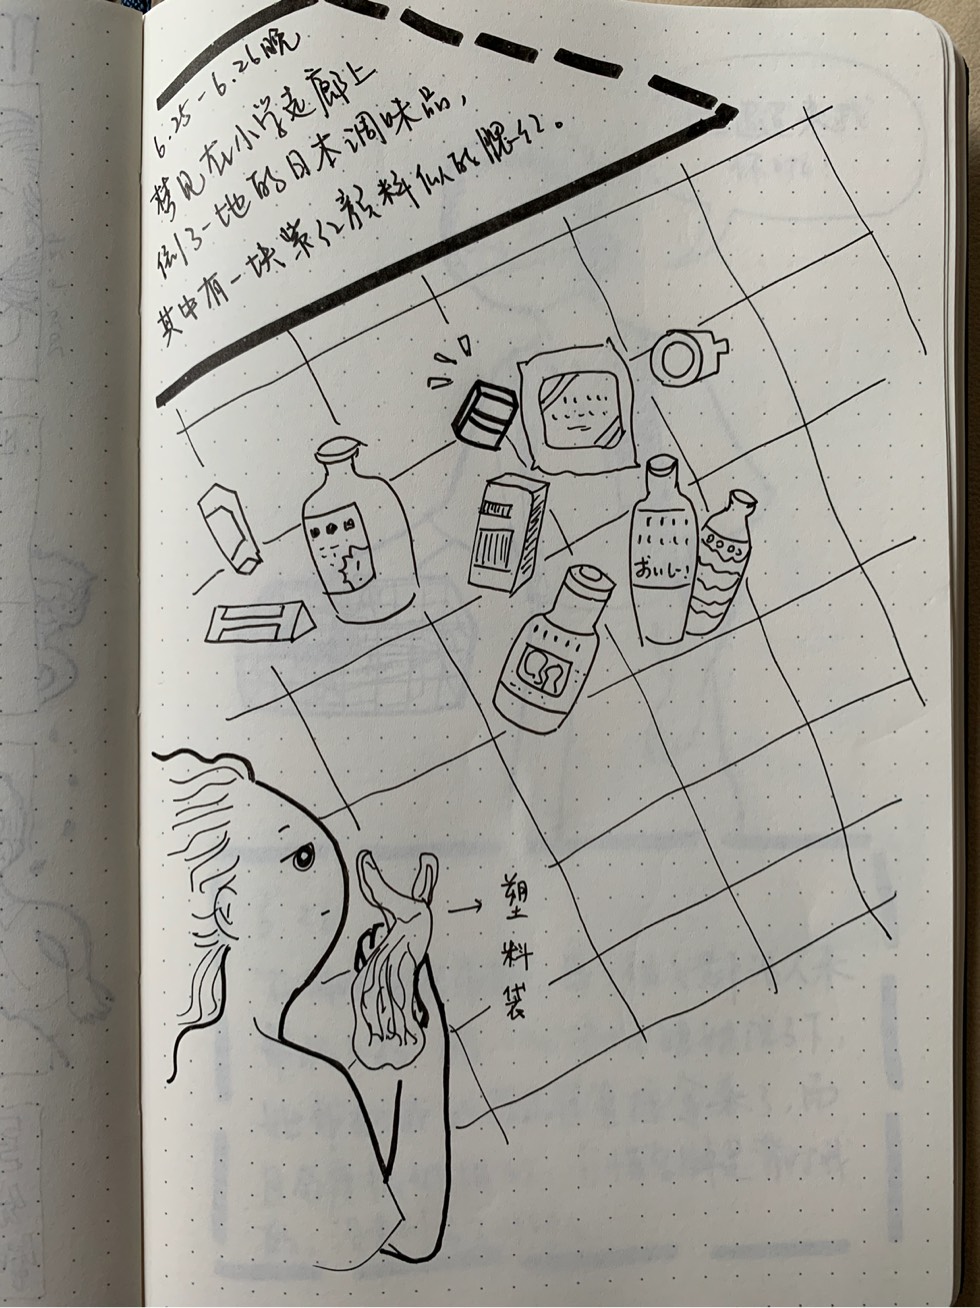 6.25-6.26晚
梦见在小学走廊上
倒了一地的日本调味品，
其中有一块紫红颜料似的腮红。
おいしい
塑
料
袋